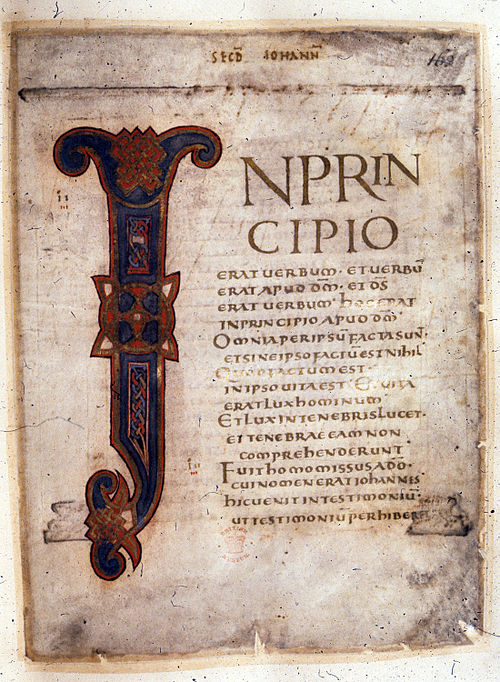 SECD̄ IOHANN̄
INPRIN
CIPIO
ERAT UERBUM · ET UERBŪ
ERAT APUD DM̄ · ET DS̄
ERAT UERBUM · HOC ERAT
IN PRINCIPIO APUD DM̄
OMNIA PER IPSŪ FACTA SUN̄
ET SINE IPSO FACTŪ EST NIHIL
QUOD FACTUM EST ·
IN IPSO UITA EST · ET UITA
ERAT LUX HOMINUM
ET LUX IN TENEBRIS LUCET ·
ET TENEBRAE EAM NON
COMPREHENDERUNT
FUIT HOMO MISSUS A DŌ
CUI NOMEN ERAT IOHANNIS
HIC UENIT IN TESTIMONIŪ
UT TESTIMONIŪ PERHIBER